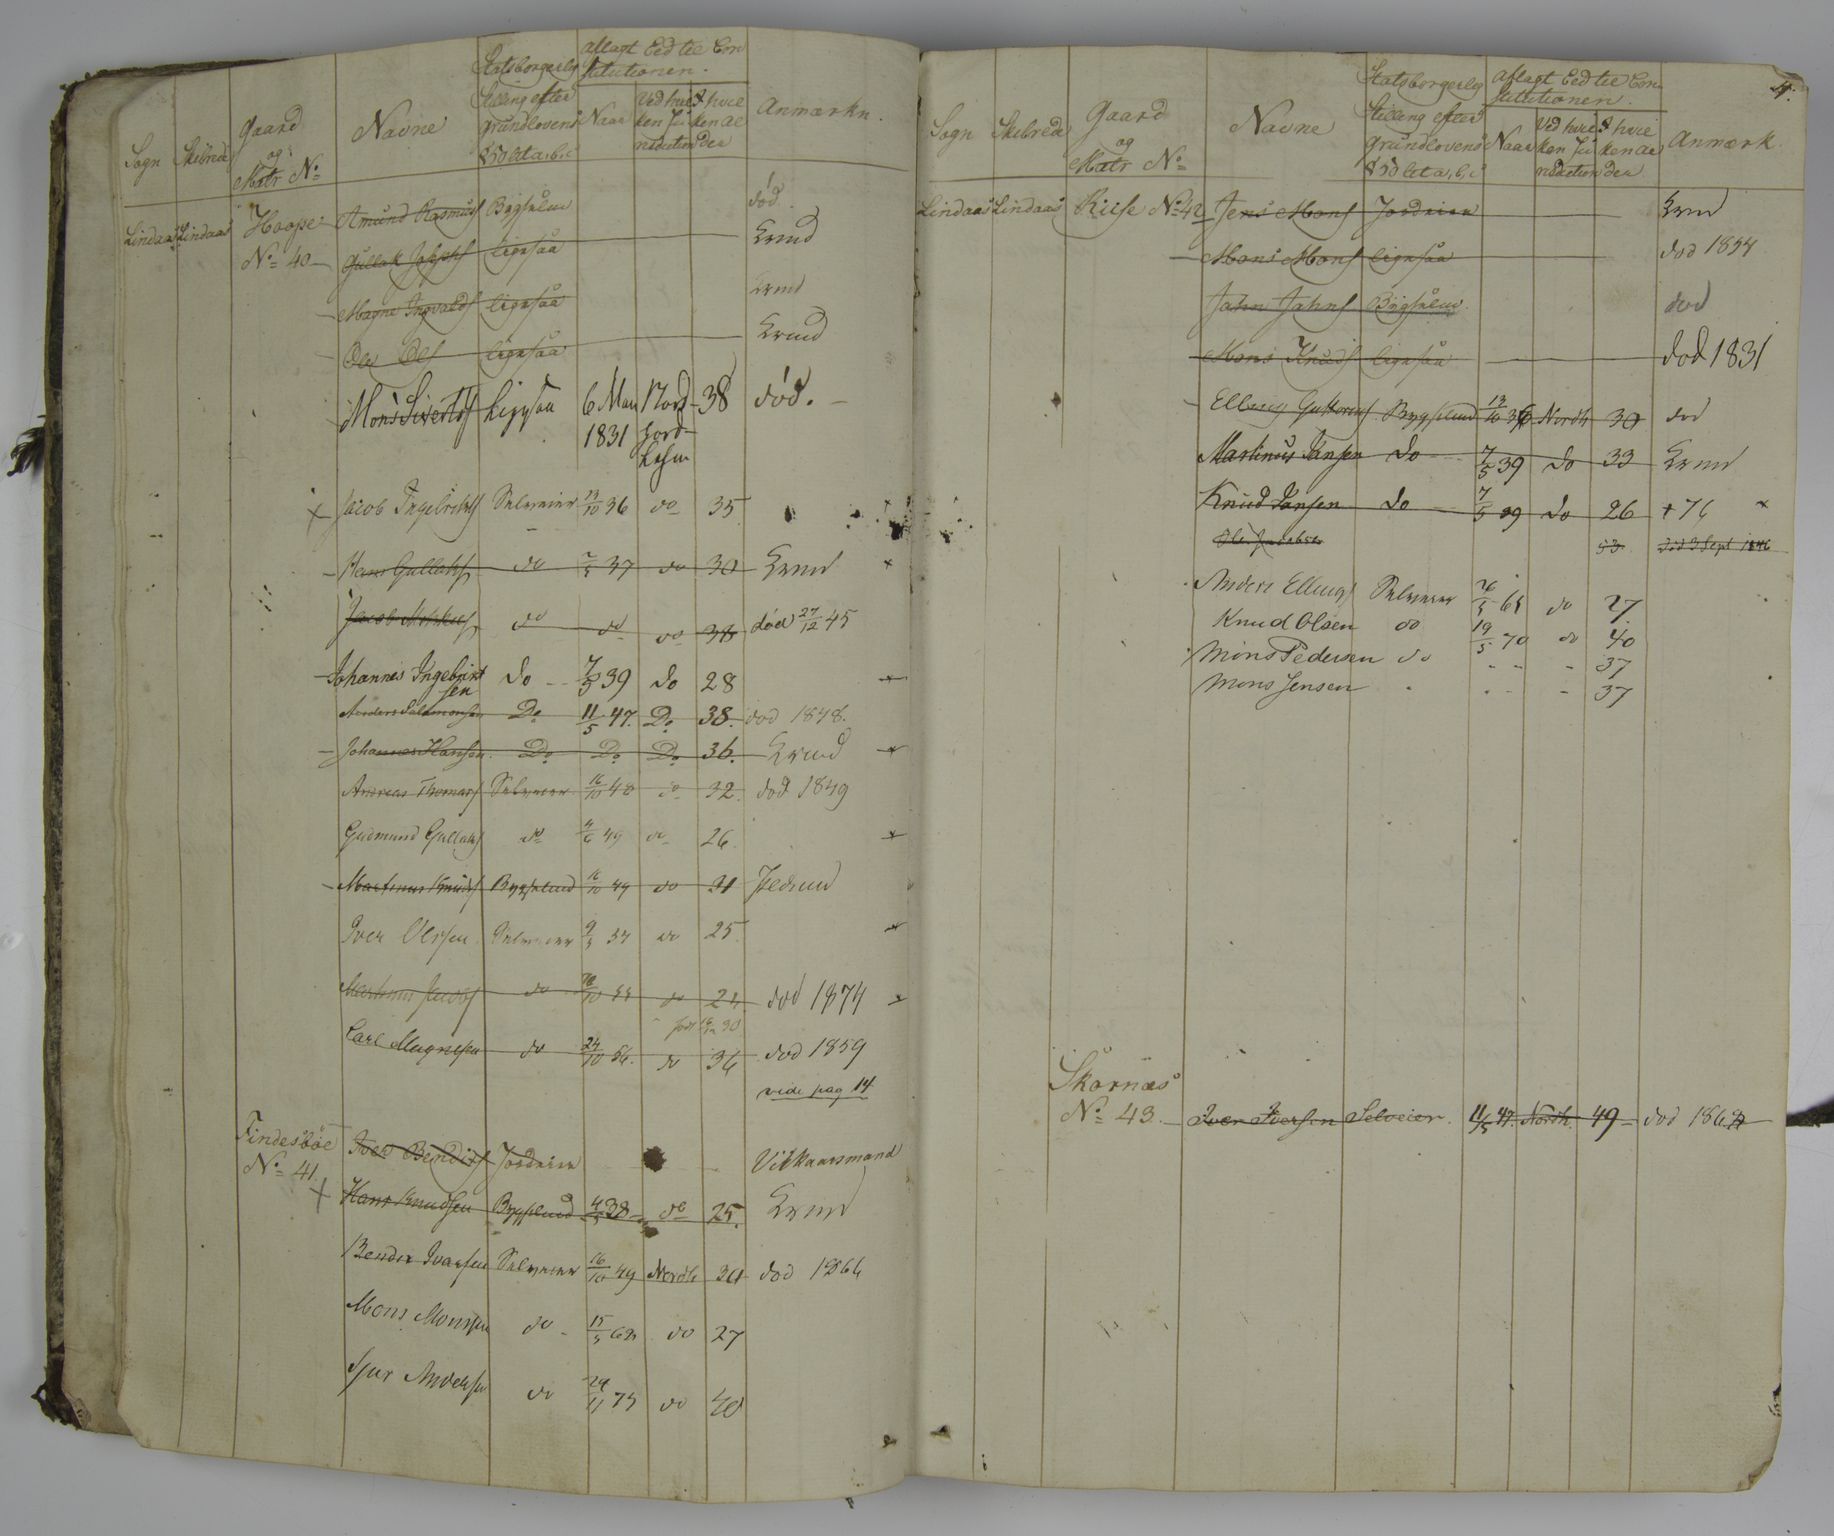 Sogn Skibrede Gaard og Matr No Navne Statsborgerlig Stilling efter Grundlovens § 50 lit a, b, c Aflagt Eed til Constitutionen. Naar Ved hvilken Jurisdiction I hvilken Alder Anmærkn.
Lindaas Lindaas Hoope No 40 Amund Rasmus Bygselm død.
Gullak Lignsaa
Magne Ingvalds Lignsaa
Ole Ols Lignsaa
Mons Siverts 6 Mai 1831 Nordhord 38 død.
Jacob Ingebrigts Selveier 13/10 36 do 35
Hans Gullaks do 37 do 30
Jacob do do do 38 død 27/12 45
Johannes Ingebrigtsen do 7/5 39 do 28
Anders Salamonsen Do 11/5 47. Do 38. død 1848.
Johannes Hansen Do Do Do 36.
Andreas Thomas Selveier 16/10 48 do 32. død 1849
Gudmund Gullaks do 49 do 26.
Martinus Knuds Bygselmd 16/10 49 do 31
Iver Olsen Selveier do 25.
Martinus do do død 1874
Carl Magnesen do 24/10 56. do 36 død 1859
vide pag 14
Findesbøe No 41. Iver Bendix Jordeier Vilkaarsmand
Hans Knudsen Bygselmd 4/5 38 do 25.
Bendix Ivarsen Selveier 16/10 49 Nordh 30 død 1866
Mons Monsen do 15/5 62 do 27
Sjur Andersen do 75 do 40
4.
Sogn Skibrede Gaard og Matr No Navne Statsborgerlig Stilling efter Grundlovens § 50 lit a, b, c Aflagt Eed til Constitutionen. Naar Ved hvilken Jurisdiction I hvilken Alder Anmærk.
Lindaas Lindaas Riise No 42 Jens Mons Jordeier
Mons Mons Lignsaa død 1854
Jahn Jahns Bygselm. død
Mons Knuds Lignsaa død 1831
Elling Guttorms Bygselmd 13/10 36 Nordh 30 død
Martinus Jansen do 7/5 39 do 33
Knud Jansen do 7/5 39 do 26 + 76
Ole Jacobsen 53. død 3 Sept 1846
Anders Ellings Selveier 65 do 27.
Knud Olsen do 19/5 70 do 40
Mons Pedersen do " " " 37
Mons Jensen " " " " 37
Skornæs No 43. Iver Iversen Selveier. 11/5 47. Nordh. 49